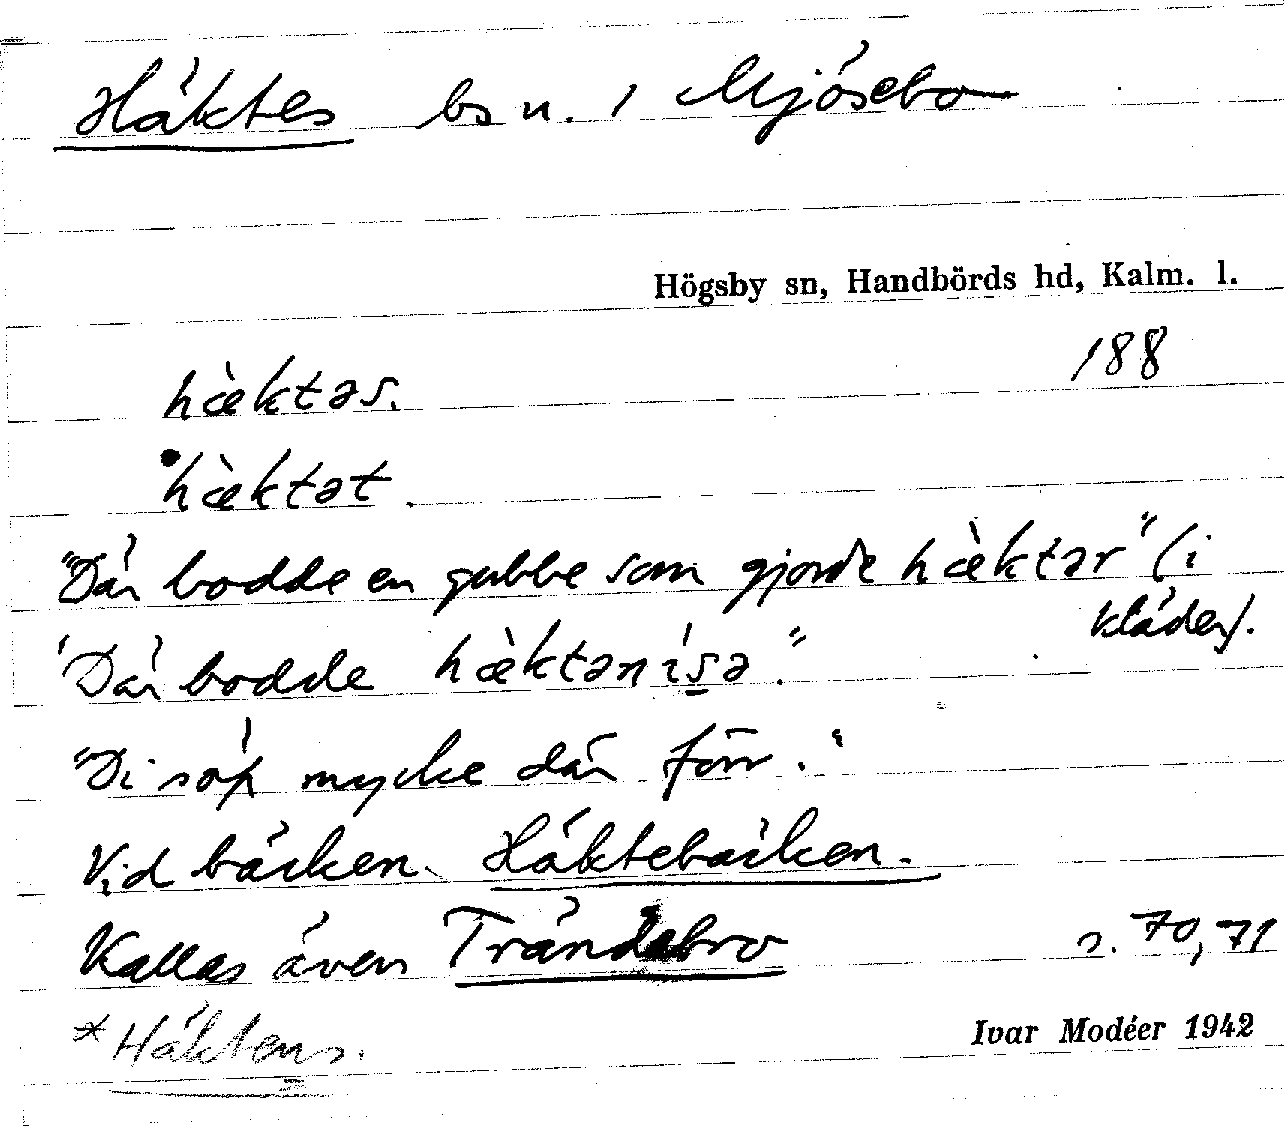 Häktes bs n. i Mjösebo
Högsby sn, Handbörds hd, Kalm. l.
188
hæ̀ktəs.
hæ̀ktət.
"Där bodde en gubbe som gjorde hæ̀ktər" (i
kläder).
"Där bodde hæ̀ktənísə."
"Di söp mycke där förr."
Vid bäcken. Häktebäcken.
Kallas även Trändabro s. 70, 71
*Häktens.
Ivar Modéer 1942